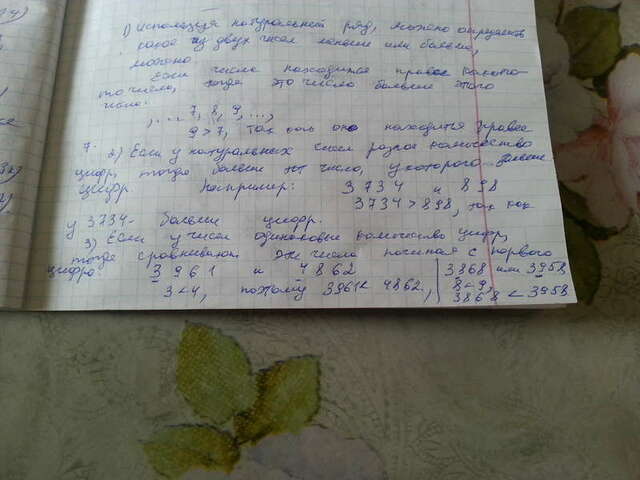 1) Используя натуральный ряд, можно определить
какое из двух чисел меньше или больше,
можно.
Если число находится правее какого-
то числа, тогда это число больше этого
числа.
..., 7, 8, 9, ...,
9 > 7, так как оно находится правее
7. 2) Если у натуральных чисел разное количество
цифр, тогда больше то число, у которого больше
цифр. Например: 3734 и 898
3734 > 898, так как
у 3734 - больше цифр.
3) Если у чисел одинаковое количество цифр,
тогда сравниваем эти числа начиная с первого
цифра: 3961 и 4862 3868 или 3958
3<4, поэтому 3961< 4862, 8<9,
3868 < 3958